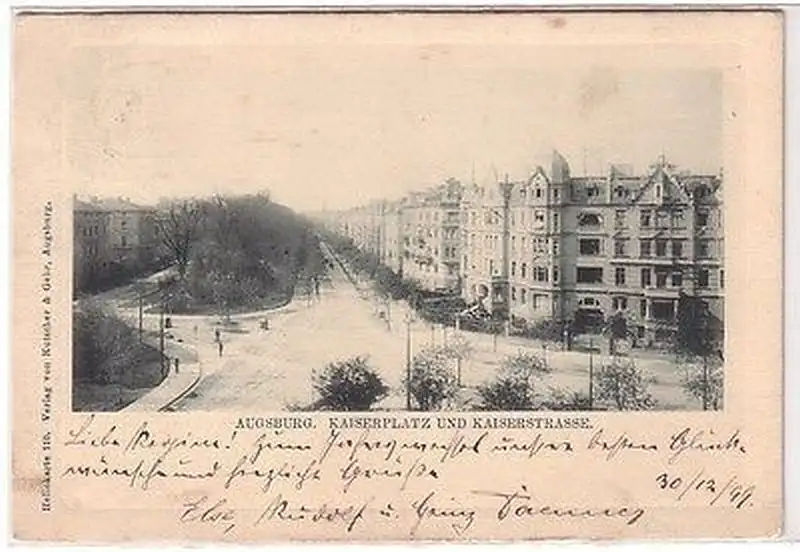 AUGSBURG. KAISERPLATZ UND KAISERSTRASSE.
Liebe Regine! Zum Jahreswechsel unsere besten Glück-
wünsche und herzliche Grüße
30/12/99.
Else, Rudolf u. Heinz
Heliokarte 110. Verlag von Kutscher & Gehr, Augsburg.